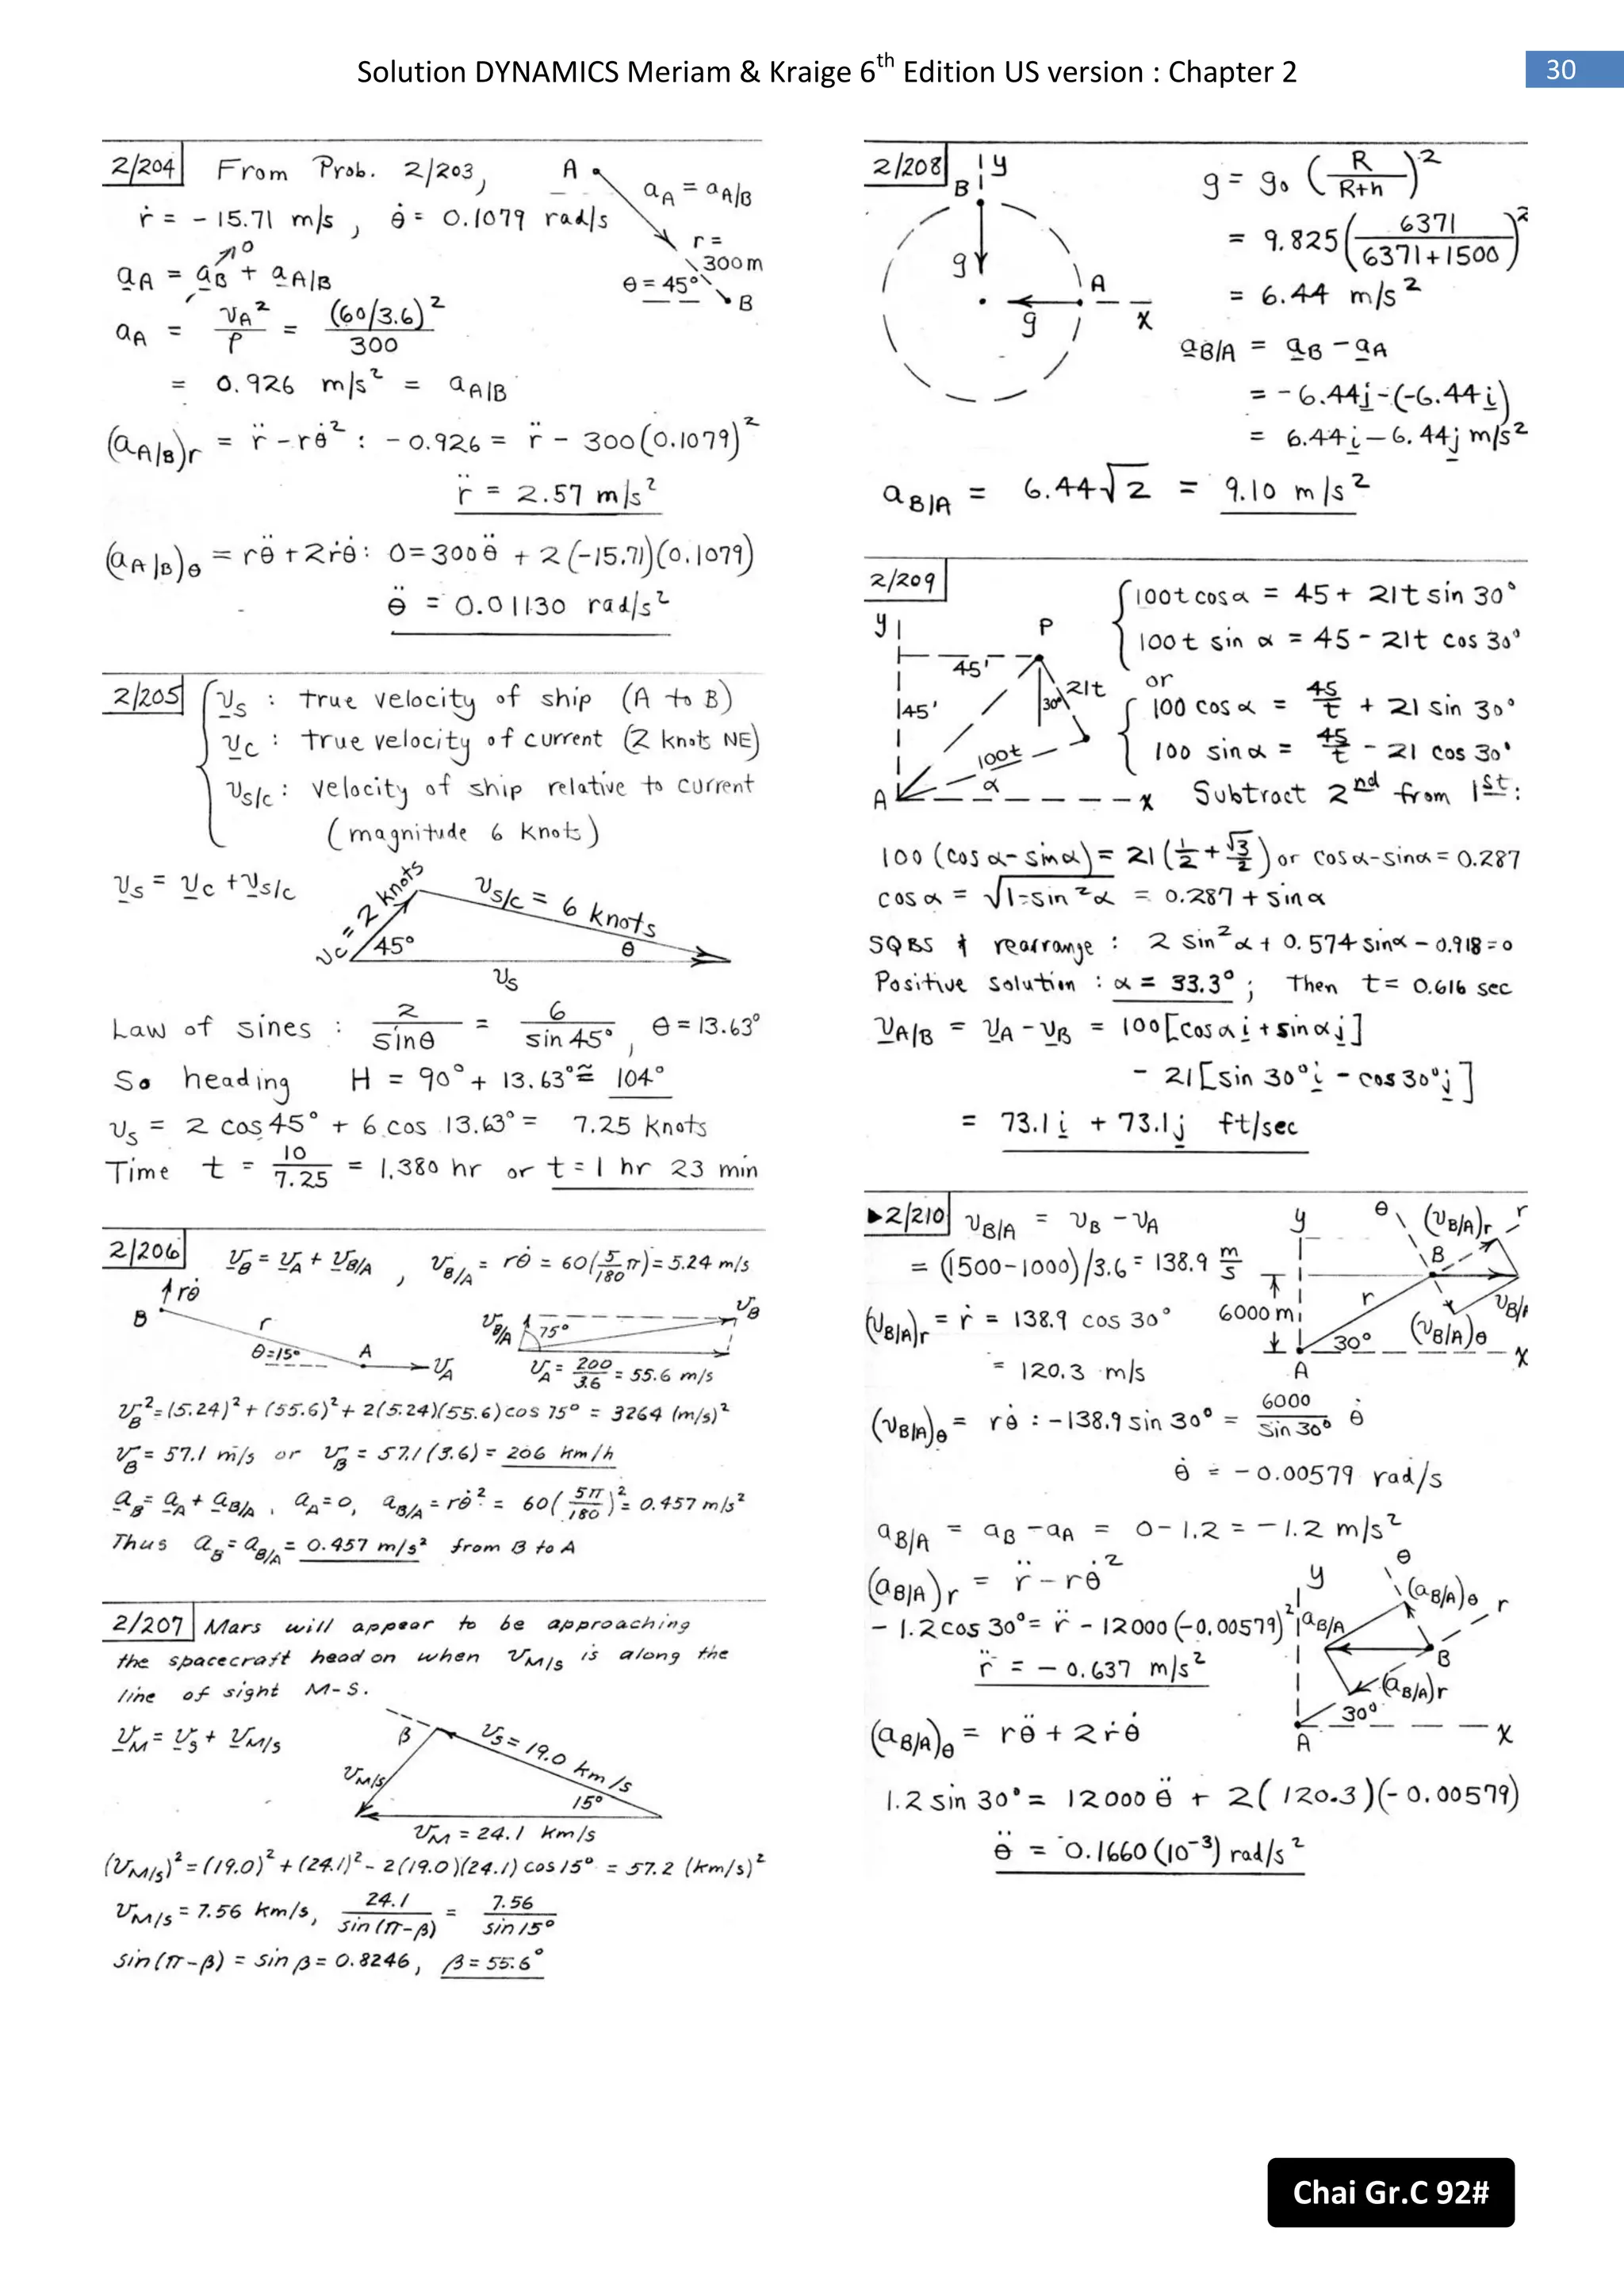 Solution DYNAMICS Meriam & Kraige 6th Edition US version : Chapter 2
30
2/204 From Prob. 2/203,
ṙ = - 15.71 m/s , θ̇ = 0.1079 rad/s
A
a_A = a_A/B
r =
300m
θ = 45°
B
a_A = a_B + a_A/B
0
a_A = v_A² / ρ = (60/3.6)² / 300
= 0.926 m/s² = a_A/B
(a_A/B)r = r̈ - rθ̇² : - 0.926 = r̈ - 300(0.1079)²
r̈ = 2.57 m/s²
(a_A/B)θ = rθ̈ + 2ṙθ̇ : 0 = 300θ̈ + 2(-15.71)(0.1079)
θ̈ = 0.01130 rad/s²
2/205 v_S : true velocity of ship (A to B)
v_C : true velocity of current (2 knots NE)
v_S/C : velocity of ship relative to current
(magnitude 6 knots)
v_S = v_C + v_S/C
v_C = 2 knots
v_S/C = 6 knots
45°
θ
v_S
Law of sines : 2 / sinθ = 6 / sin 45° , θ = 13.63°
So heading H = 90° + 13.63° ≅ 104°
v_S = 2 cos 45° + 6 cos 13.63° = 7.25 knots
Time t = 10 / 7.25 = 1.380 hr or t = 1 hr 23 min
2/206 v_B = v_A + v_B/A , v_B/A = rθ̇ = 60(5/180 π) = 5.24 m/s
rθ̇
B
r
θ=15°
A
v_A
v_B/A
75°
v_B
v_A = 200/3.6 = 55.6 m/s
v_B² = (5.24)² + (55.6)² + 2(5.24)(55.6) cos 75° = 3264 (m/s)²
v_B = 57.1 m/s or v_B = 57.1(3.6) = 206 km/h
a_B = a_A + a_B/A , a_A = 0, a_B/A = rθ̇² = 60(5π/180)² = 0.457 m/s²
Thus a_B = a_B/A = 0.457 m/s² from B to A
2/207 Mars will appear to be approaching
the spacecraft head on when v_M/S is along the
line of sight M-S.
v_M = v_S + v_M/S
β
v_S = 19.0 km/s
v_M/S
15°
v_M = 24.1 km/s
(v_M/S)² = (19.0)² + (24.1)² - 2(19.0)(24.1) cos 15° = 57.2 (km/s)²
v_M/S = 7.56 km/s, 24.1 / sin(π-β) = 7.56 / sin 15°
sin(π-β) = sin β = 0.8246, β = 55.6°
2/208
y
B
g
A
g
x
g = g₀ (R / R+h)²
= 9.825 (6371 / 6371+1500)²
= 6.44 m/s²
a_B/A = a_B - a_A
= - 6.44j - (-6.44i)
= 6.44i - 6.44j m/s²
a_B/A = 6.44√2 = 9.10 m/s²
2/209
y
P
45'
45'
30°
21t
100t
α
A
x
100t cos α = 45 + 21t sin 30°
100t sin α = 45 - 21t cos 30°
or
100 cos α = 45/t + 21 sin 30°
100 sin α = 45/t - 21 cos 30°
Subtract 2nd from 1st :
100 (cos α - sin α) = 21 (1/2 + √3/2) or cos α - sin α = 0.287
cos α = √1-sin²α = 0.287 + sin α
SQBS & rearrange : 2 sin²α + 0.574 sin α - 0.918 = 0
Positive solution : α = 33.3° ; Then t = 0.616 sec
v_A/B = v_A - v_B = 100[cos α i + sin α j]
- 21[sin 30° i - cos 30° j]
= 73.1 i + 73.1 j ft/sec
▶2/210 v_B/A = v_B - v_A
= (1500-1000)/3.6 = 138.9 m/s
(v_B/A)r = ṙ = 138.9 cos 30°
= 120.3 m/s
y
θ
(v_B/A)r
r
B
6000 m
r
v_B/
30°
(v_B/A)θ
A
x
(v_B/A)θ = rθ̇ : -138.9 sin 30° = 6000 / sin 30° θ̇
θ̇ = - 0.00579 rad/s
a_B/A = a_B - a_A = 0 - 1.2 = - 1.2 m/s²
(a_B/A)r = r̈ - rθ̇²
- 1.2 cos 30° = r̈ - 12000 (-0.00579)²
r̈ = - 0.637 m/s²
θ
y
(a_B/A)θ
r
a_B/A
B
(a_B/A)r
30°
A
x
(a_B/A)θ = rθ̈ + 2ṙθ̇
1.2 sin 30° = 12000 θ̈ + 2(120.3)(-0.00579)
θ̈ = 0.1660 (10⁻³) rad/s²
Chai Gr.C 92#